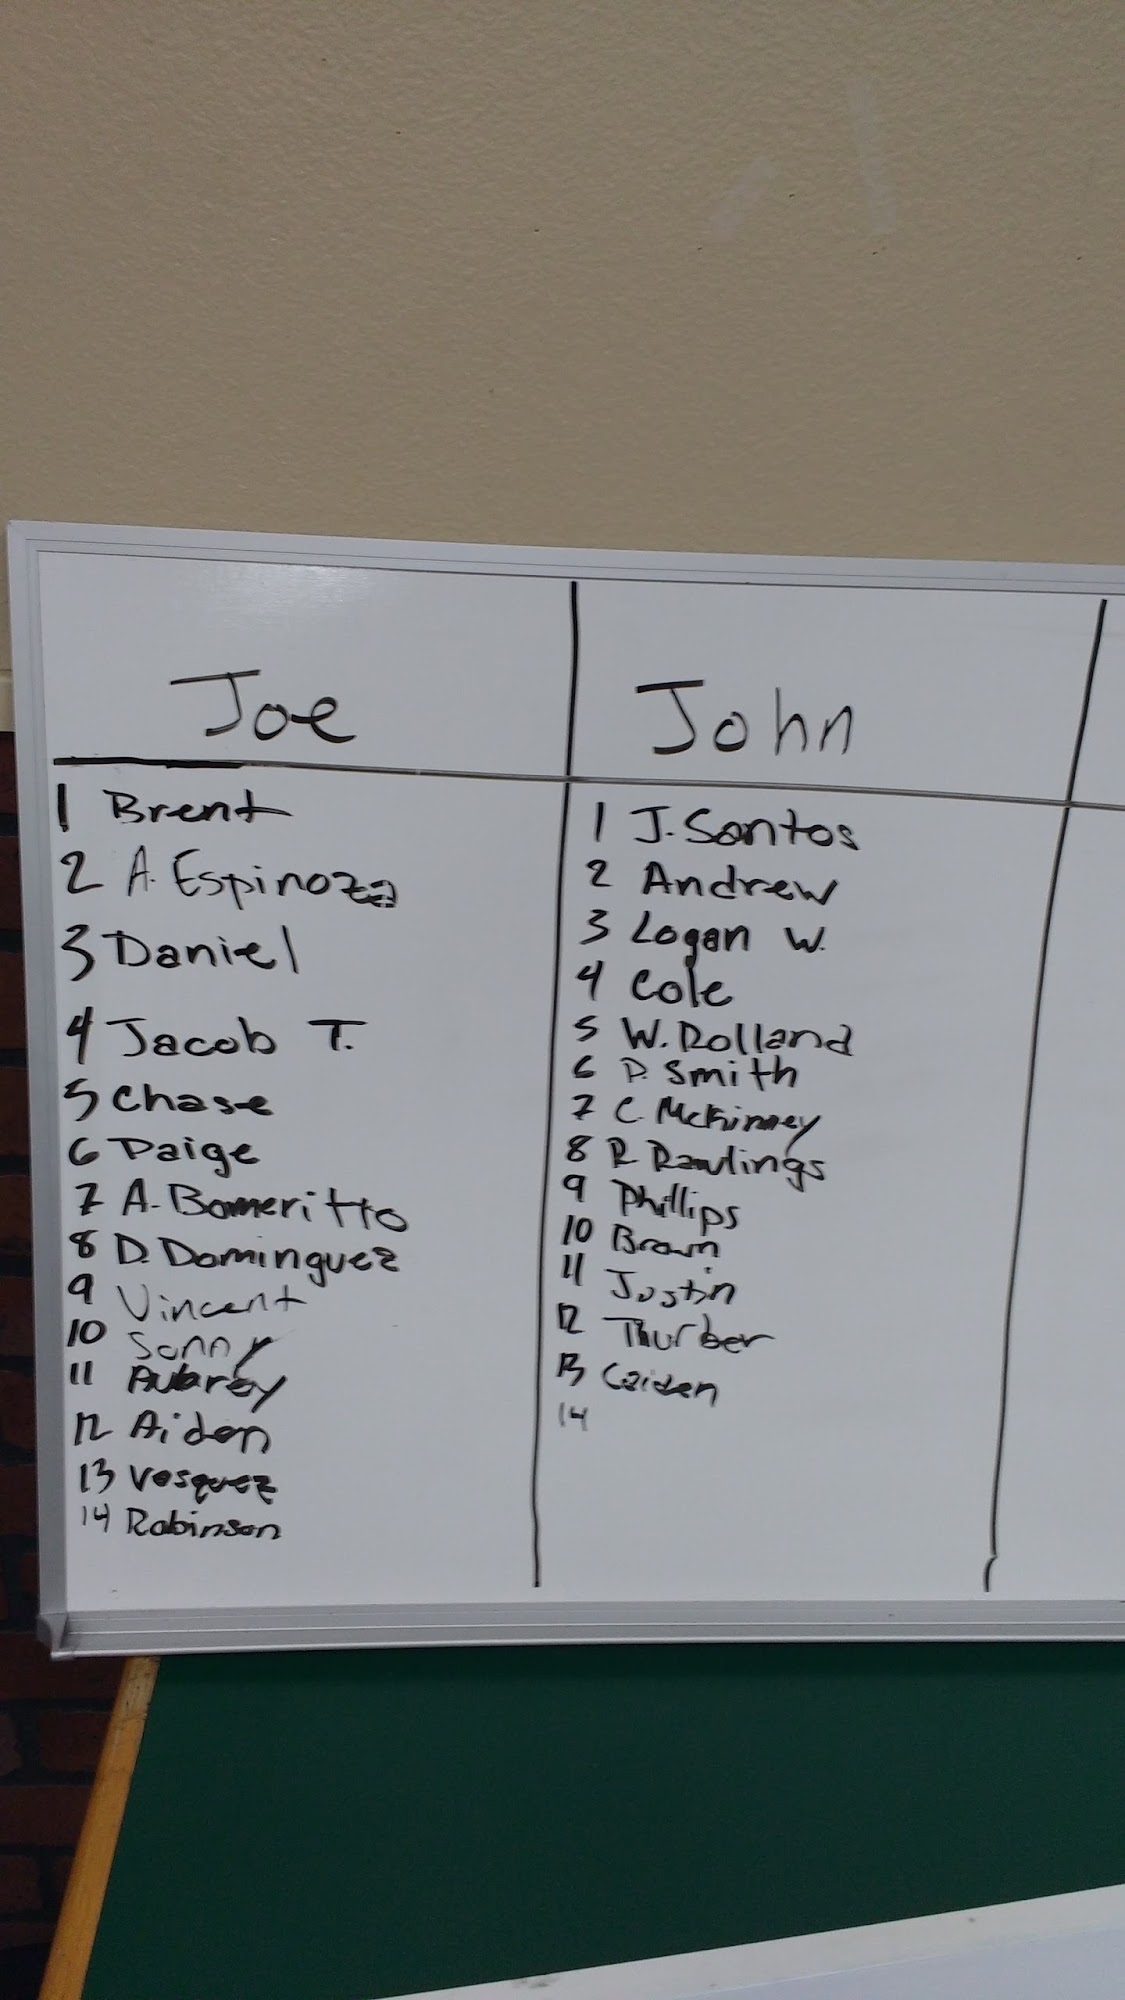 Joe
1 Brent
2 A. Espinoza
3 Daniel
4 Jacob T.
5 Chase
6 Paige
7 A. Bomeritto
8 D. Dominguez
9 Vincent
10 Sonny
11 Aubrey
12 Aiden
13 Vosquez
14 Robinson
John
1 J. Santos
2 Andrew
3 Logan W.
4 Cole
5 W. Rolland
6 P. Smith
7 C. McKinney
8 R Rawlings
9 Phillips
10 Brown
11 Justin
12 Thurber
13 Caiden
14